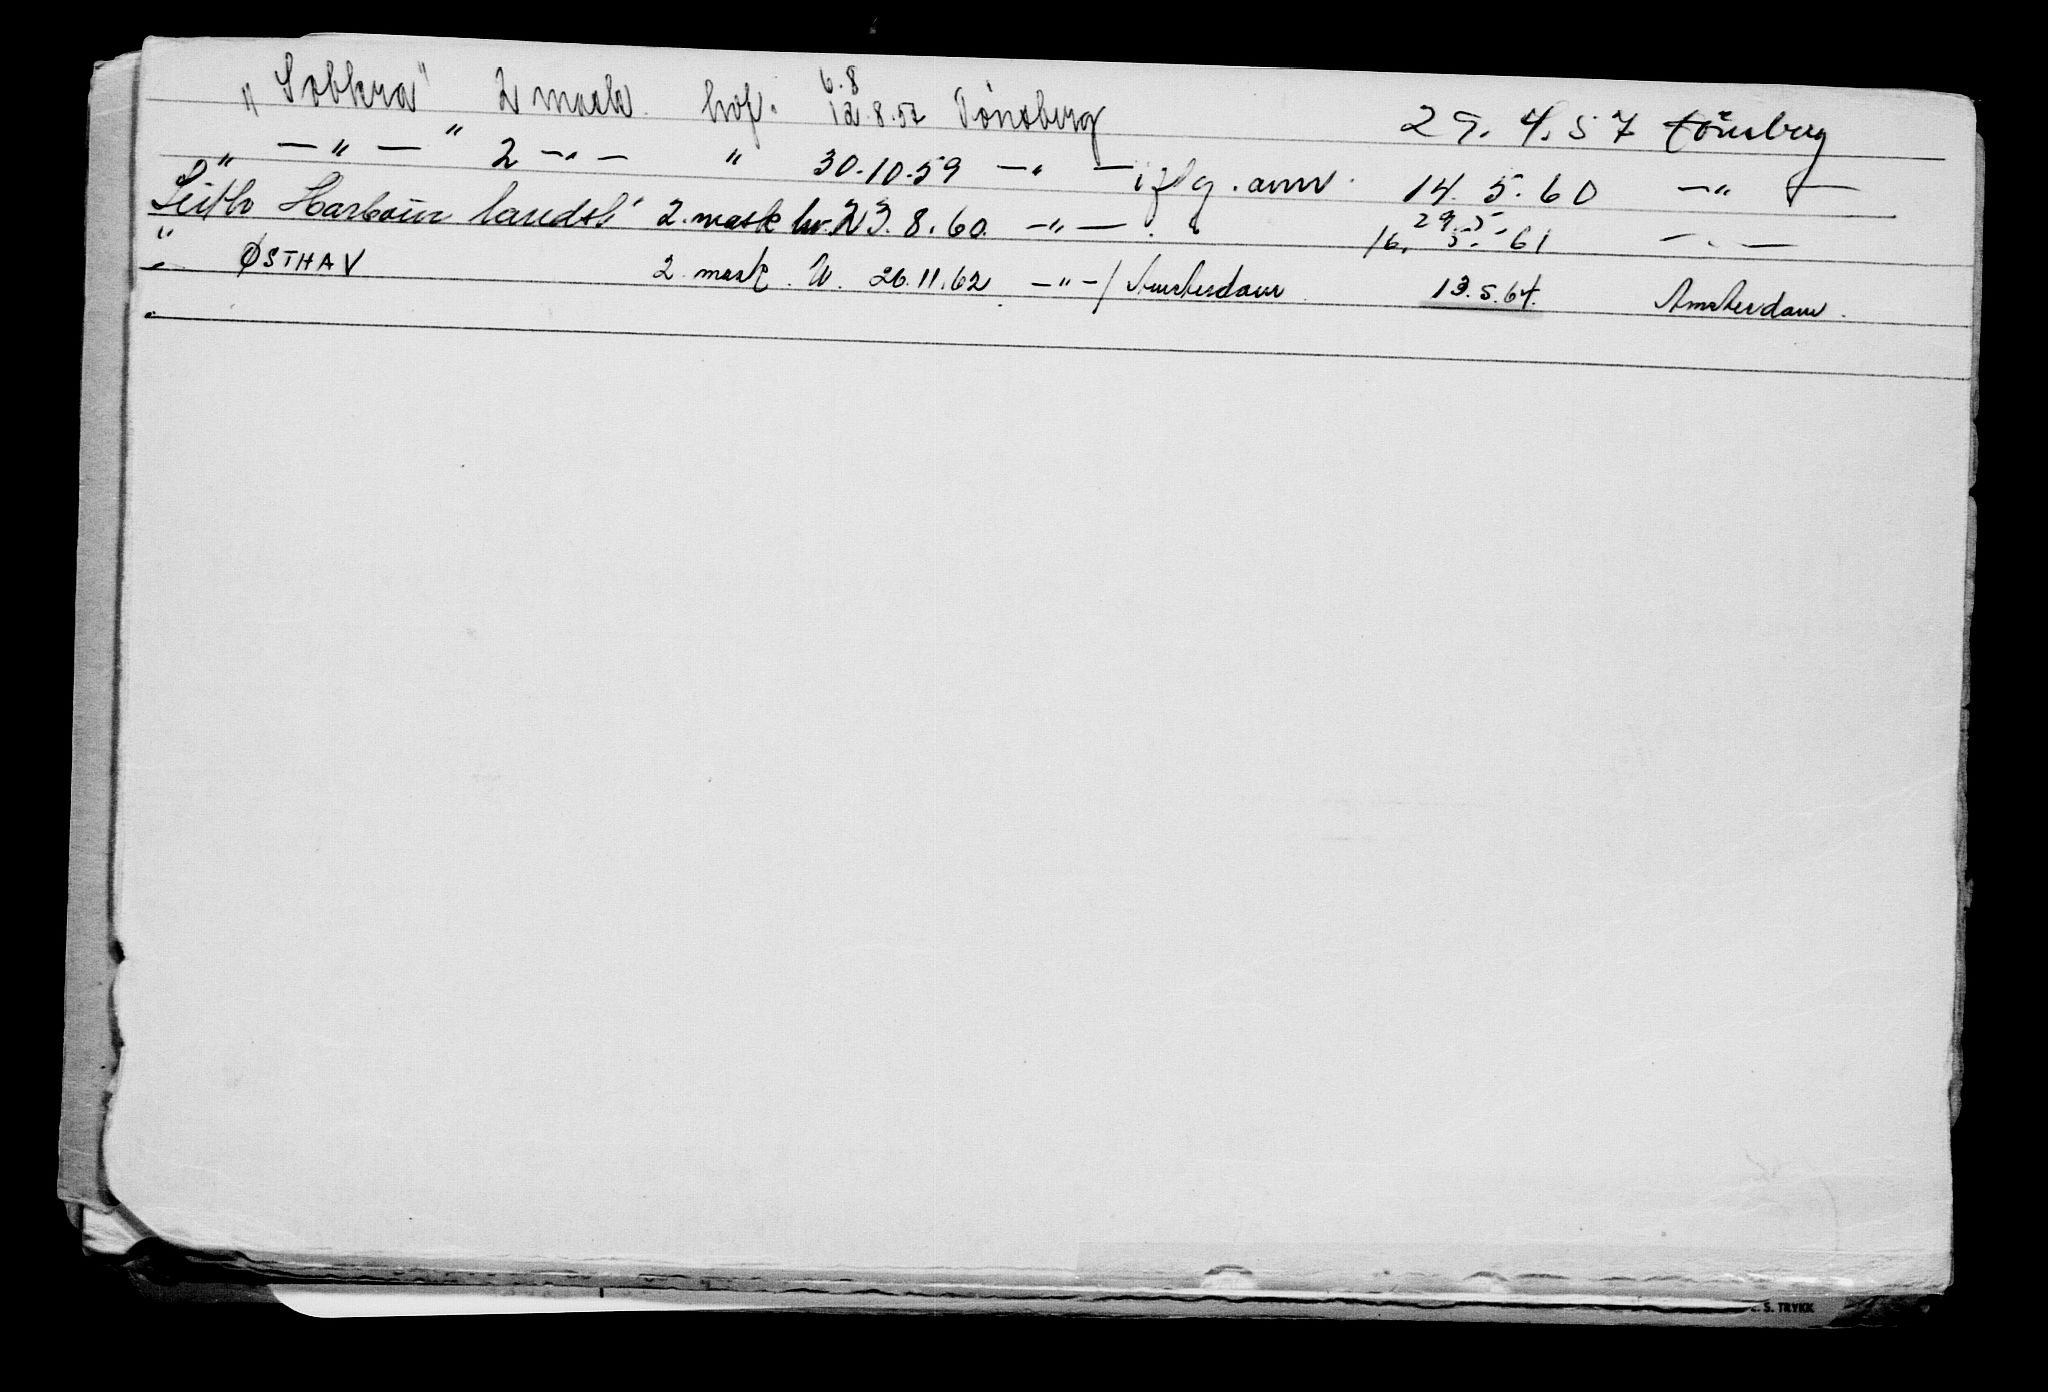 "Sobkra" 2 mask. hvf. 6.8 12.8.52 Tönsberg 29.4.57 tönsberg
" — " — " 2 — " — " 30.10.59 — " — iflg. anm. 14.5.60 — " —
Leith Harbour landst. 2. mask hv. 23.8.60. — " — . 29.5- 16.5.-61 — . —
" ØSTHAV 2. mask. U. 26.11.62 — " —/Amsterdam 13.5.64. Amsterdam.
S. TRYKK